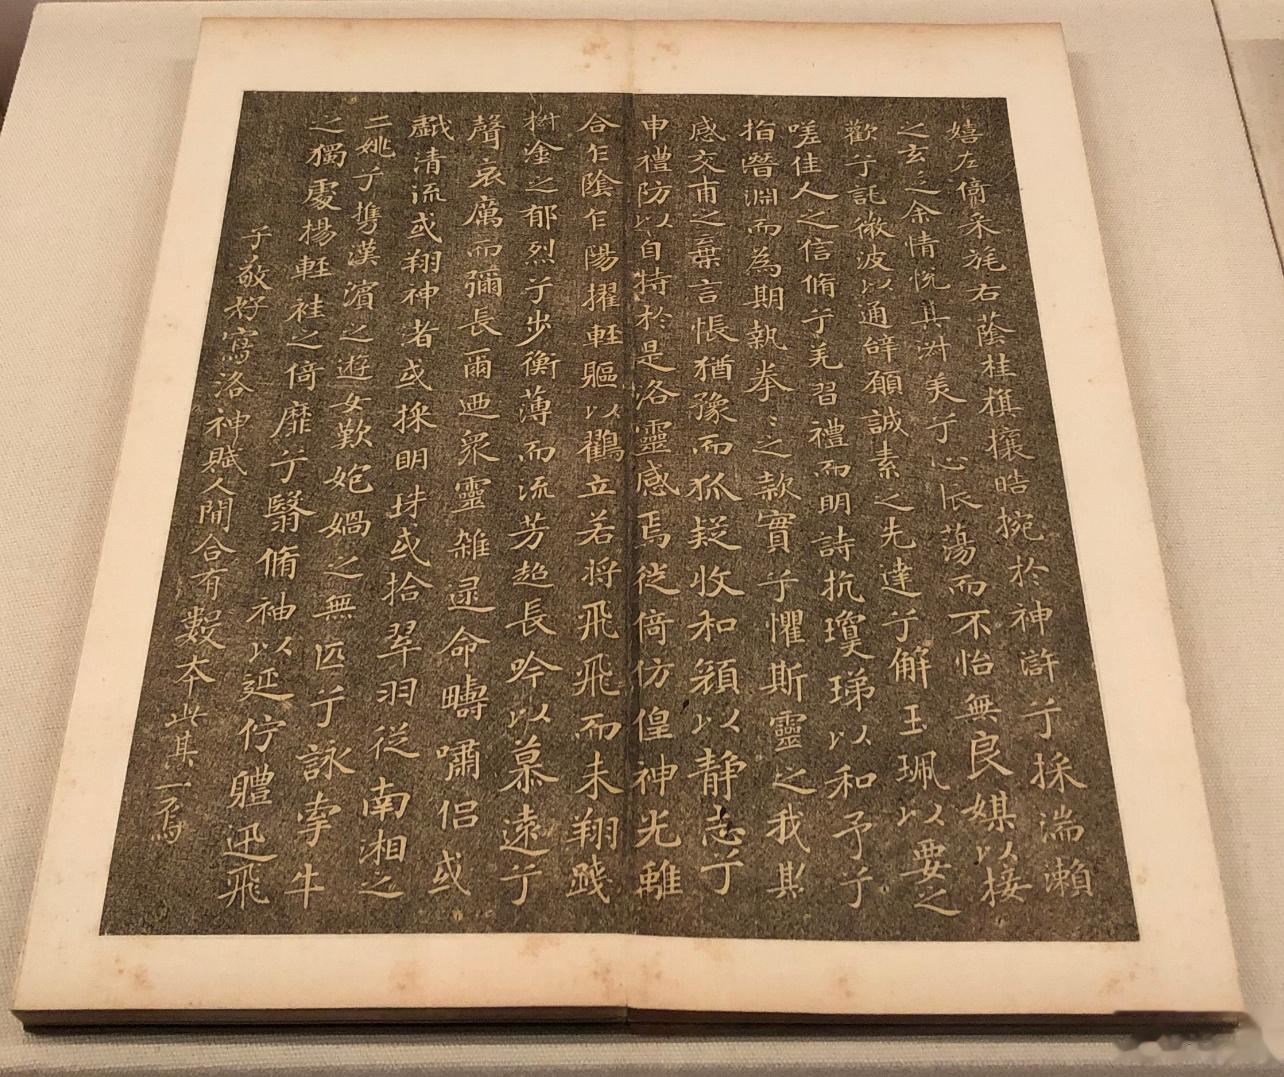 嬉左倚采旄右蔭桂旗攘皓捥於神滸兮採湍瀨
之玄芝余情悅其淑美兮心振蕩而不怡無良媒以接
歡兮託微波以通辭願誠素之先達兮解玉珮以要之
嗟佳人之信脩兮羌習禮而明詩抗瓊珶以和予兮
指潛淵而為期執拳〻之款實兮懼斯靈之我欺
感交甫之棄言悵猶豫而狐疑收和顏以靜志兮
申禮防以自持於是洛靈感焉徙倚仿偟神光離
合乍陰乍陽擢輕軀以鶴立若將飛飛而未翔踐
椒塗之郁烈兮步衡薄而流芳超長吟以慕遠兮
聲哀厲而彌長爾迺眾靈雜遝命疇嘯侶或
戲清流或翔神渚或採明珠或拾翠羽從南湘之
二姚兮攜漢濱之遊女歎匏媧之無匹兮詠牽牛
之獨處揚輕袿之倚靡兮翳脩袖以延佇體迅飛
子敬好寫洛神賦人間合有數本此其一焉